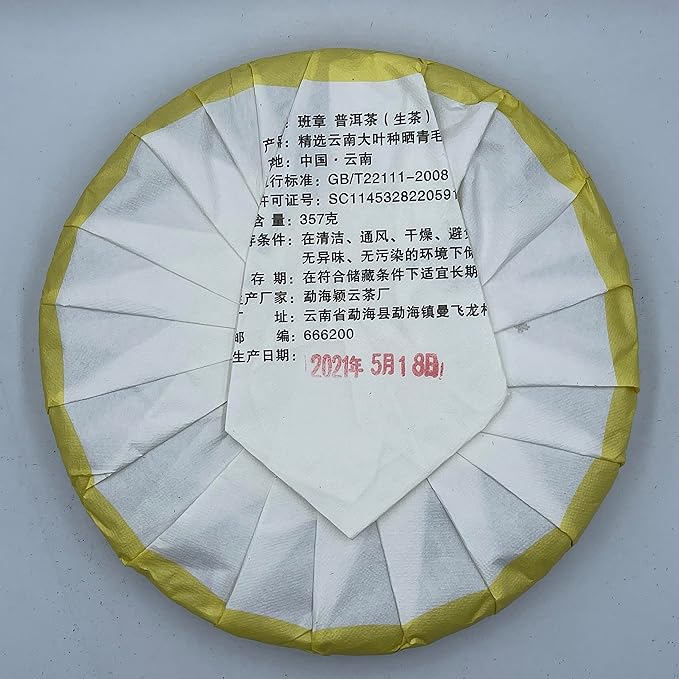 : 班章 普洱茶（生茶）
产 : 精选云南大叶种晒青毛
地: 中国·云南
行标准: GB/T22111-2008
许可证号: SC1145328220591
含 量: 357克
条件: 在清洁、通风、干燥、避
无异味、无污染的环境下储
存 期: 在符合储藏条件下适宜长期
生产厂家: 勐海颖云茶厂
址: 云南省勐海县勐海镇曼飞龙村
邮 编: 666200
生产日期:
2021年 5月18日